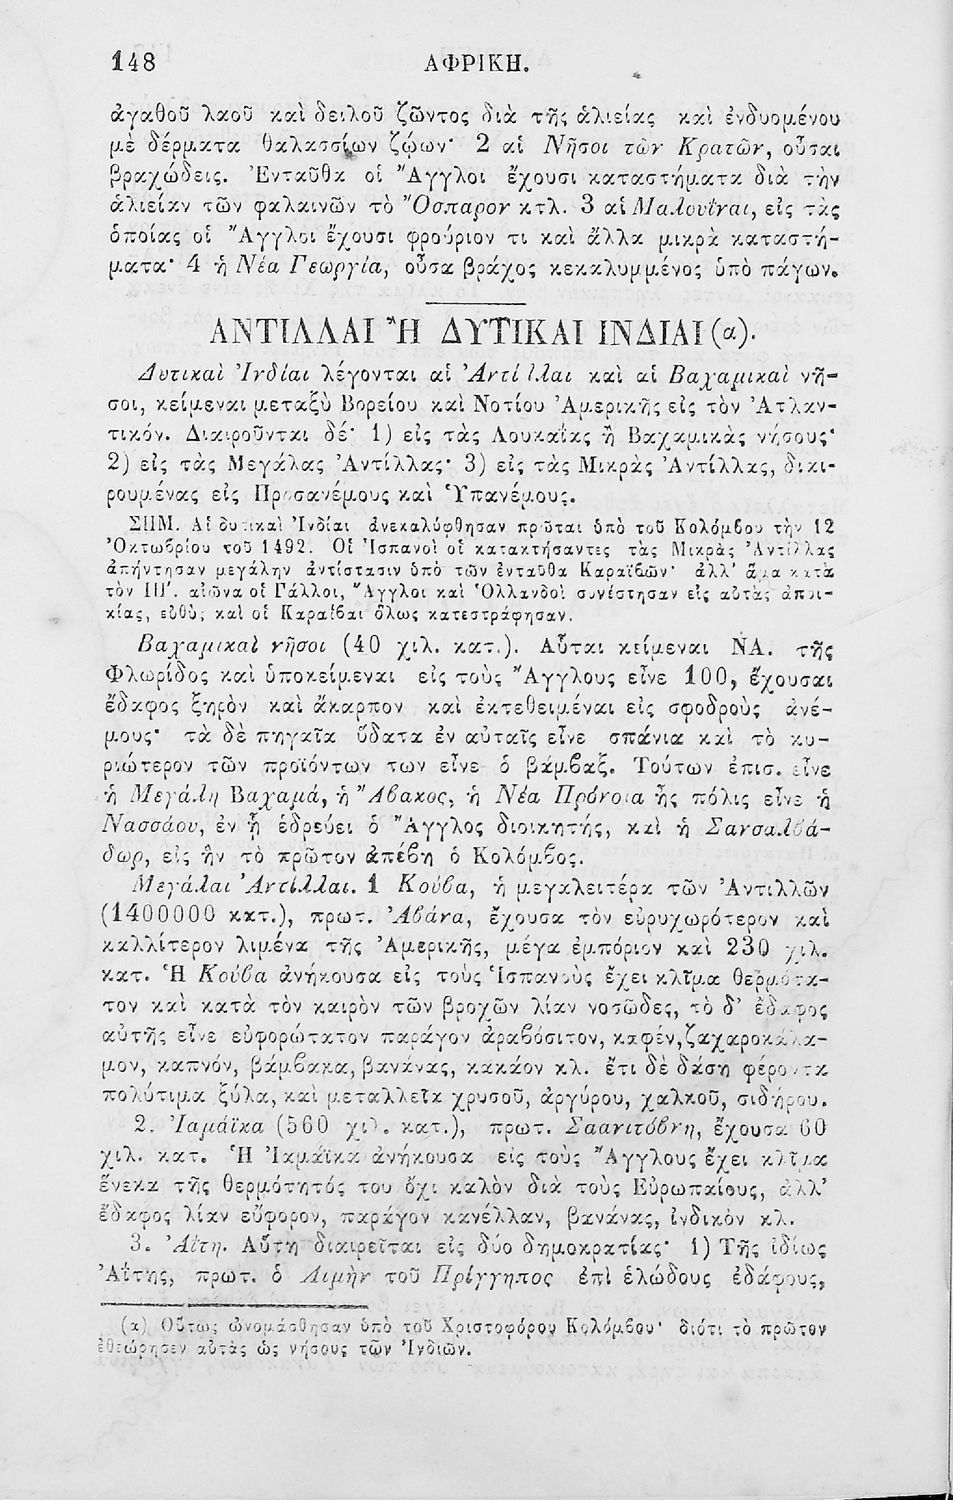 148 ΑΦΡΙΚΗ.
ἀγαθοῦ λαοῦ καὶ δειλοῦ ζῶντος διὰ τῆς ἁλιείας καὶ ἐνδυομένου
μὲ δέρματα θαλασσίων ζώων· 2 αἱ Νῆσοι τῶν Κρατῶν, οὖσαι
βραχώδεις. Ἐνταῦθα οἱ Ἄγγλοι ἔχουσι καταστήματα διὰ τὴν
ἁλιείαν τῶν φαλαινῶν τὸ Ὄσπαρον κτλ. 3 αἱ Μαλουΐναι, εἰς τὰς
ὁποίας οἱ Ἄγγλοι ἔχουσι φρούριον τι καὶ ἄλλα μικρὰ καταστή-
ματα· 4 ἡ Νέα Γεωργία, οὖσα βράχος κεκαλυμμένος ὑπὸ πάγων.
ΑΝΤΙΛΛΑΙ Ἢ ΔΥΤΙΚΑΙ ΙΝΔΙΑΙ (α).
Δυτικαὶ Ἰνδίαι λέγονται αἱ Ἀντίλλαι καὶ αἱ Βαχαμικαὶ νῆ-
σοι, κείμεναι μεταξὺ Βορείου καὶ Νοτίου Ἀμερικῆς εἰς τὸν Ἀτλαν-
τικόν. Διαιροῦνται δέ· 1) εἰς τὰς Λουκαΐας ἢ Βαχαμικὰς νήσους·
2) εἰς τὰς Μεγάλας Ἀντίλλας· 3) εἰς τὰς Μικρὰς Ἀντίλλας, διαι-
ρουμένας εἰς Προσανέμους καὶ Ὑπανέμους.
ΣΗΜ. Αἱ δυτικαὶ Ἰνδίαι ἀνεκαλύφθησαν πρῶται ὑπὸ τοῦ Κολόμβου τὴν 12
Ὀκτωβρίου τοῦ 1492. Οἱ Ἱσπανοὶ οἱ κατακτήσαντες τὰς Μικρὰς Ἀντίλλας
ἀπήντησαν μεγάλην ἀντίστασιν ὑπὸ τῶν ἐνταῦθα Καραϊβῶν· ἀλλ' ἅμα κατὰ
τὸν ΙΗ΄. αἰῶνα οἱ Γάλλοι, Ἄγγλοι καὶ Ὁλλανδοὶ συνέστησαν εἰς αὐτὰς ἀποι-
κίας, εὐθὺς καὶ οἱ Καραΐβαι ὅλως κατεστράφησαν.
Βαχαμικαὶ νῆσοι (40 χιλ. κατ.). Αὗται κείμεναι ΝΑ. τῆς
Φλωρίδος καὶ ὑποκείμεναι εἰς τοὺς Ἄγγλους εἶνε 100, ἔχουσαι
ἔδαφος ξηρὸν καὶ ἄκαρπον καὶ ἐκτεθειμέναι εἰς σφοδροὺς ἀνέ-
μους· τὰ δὲ πηγαῖα ὕδατα ἐν αὐταῖς εἶνε σπάνια καὶ τὸ κυ-
ριώτερον τῶν προϊόντων των εἶνε ὁ βάμβαξ. Τούτων ἐπισ. εἶνε
ἡ Μεγάλη Βαχαμά, ἡ Ἄβακος, ἡ Νέα Πρόνοια ἧς πόλις εἶνε ἡ
Νασσάου, ἐν ᾗ ἑδρεύει ὁ Ἄγγλος διοικητής, καὶ ἡ Σανσαλβά-
δωρ, εἰς ἣν τὸ πρῶτον ἀπέβη ὁ Κολόμβος.
Μεγάλαι Ἀντίλλαι. 1 Κούβα, ἡ μεγαλειτέρα τῶν Ἀντιλλῶν
(1400000 κατ.), πρωτ. Ἀβάνα, ἔχουσα τὸν εὐρυχωρότερον καὶ
καλλίτερον λιμένα τῆς Ἀμερικῆς, μέγα ἐμπόριον καὶ 230 χιλ.
κατ. Ἡ Κούβα ἀνήκουσα εἰς τοὺς Ἱσπανοὺς ἔχει κλῖμα θερμότα-
τον καὶ κατὰ τὸν καιρὸν τῶν βροχῶν λίαν νοσῶδες, τὸ δ' ἔδαφος
αὐτῆς εἶνε εὐφορώτατον παράγον ἀραβόσιτον, καφέν, ζαχαροκάλα-
μον, καπνόν, βάμβακα, βανάνας, κακάον κλ. ἔτι δὲ δάση φέροντα
πολύτιμα ξύλα, καὶ μεταλλεῖα χρυσοῦ, ἀργύρου, χαλκοῦ, σιδήρου.
2. Ἰαμάϊκα (560 χιλ. κατ.), πρωτ. Σααντόβνη, ἔχουσα 60
χιλ. κατ. Ἡ Ἰαμάϊκα ἀνήκουσα εἰς τοὺς Ἄγγλους ἔχει κλῖμα
ἕνεκα τῆς θερμότητός του ὄχι καλὸν διὰ τοὺς Εὐρωπαίους, ἀλλ'
ἔδαφος λίαν εὔφορον, παράγον κανέλλαν, βανάνας, ἰνδικὸν κλ.
3. Ἀΐτη. Αὕτη διαιρεῖται εἰς δύο δημοκρατίας· 1) Τῆς ἰδίως
Ἀΐτης, πρωτ. ὁ Λιμὴν τοῦ Πρίγγηπος ἐπὶ ἑλώδους ἐδάφους,
(α) Οὕτως ὠνομάσθησαν ὑπὸ τοῦ Χριστοφόρου Κολόμβου· διότι τὸ πρῶτον
ἐθεώρησεν αὐτὰς ὡς νήσους τῶν Ἰνδιῶν.